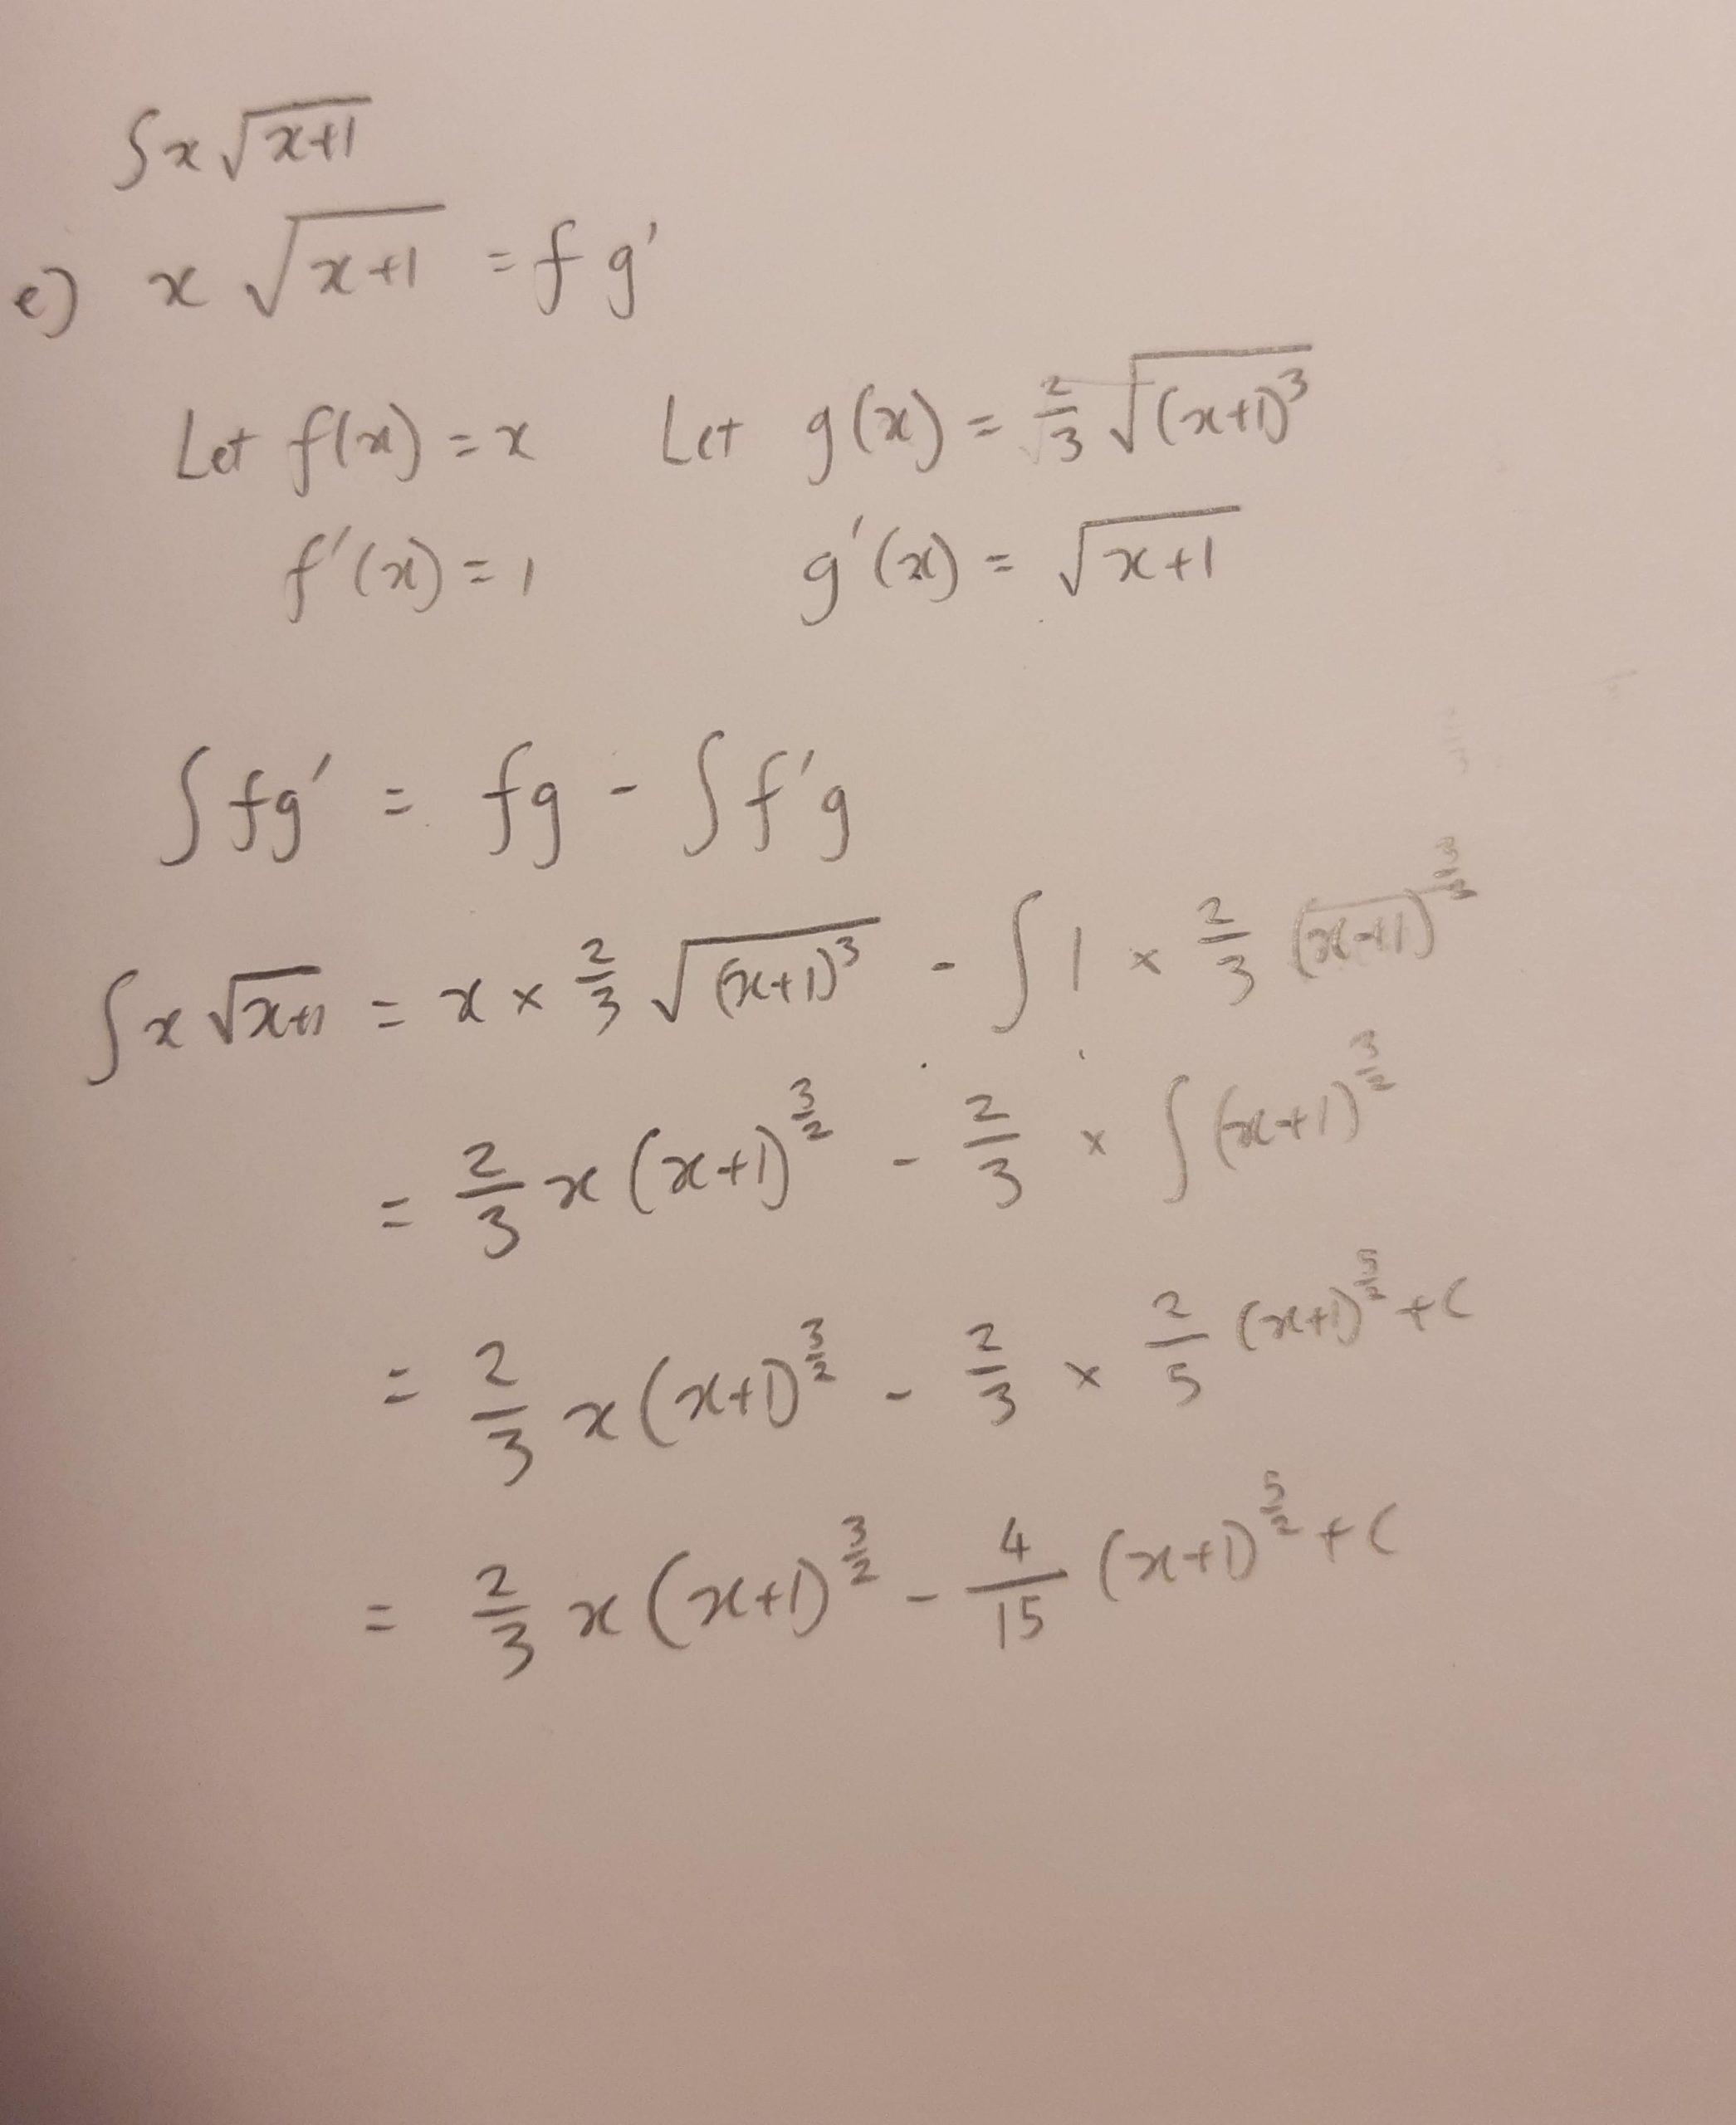 ∫x√(x+1)
e) x √(x+1) = f g'
Let f(x) = x Let g(x) = 2/3 √((x+1)³)
f'(x) = 1 g'(x) = √(x+1)
∫fg' = fg - ∫f'g
∫x√(x+1) = x × 2/3 √((x+1)³) - ∫1 × 2/3 (x+1)^(3/2)
= 2/3 x (x+1)^(3/2) - 2/3 × ∫(x+1)^(3/2)
= 2/3 x (x+1)^(3/2) - 2/3 × 2/5 (x+1)^(5/2) + C
= 2/3 x (x+1)^(3/2) - 4/15 (x+1)^(5/2) + C